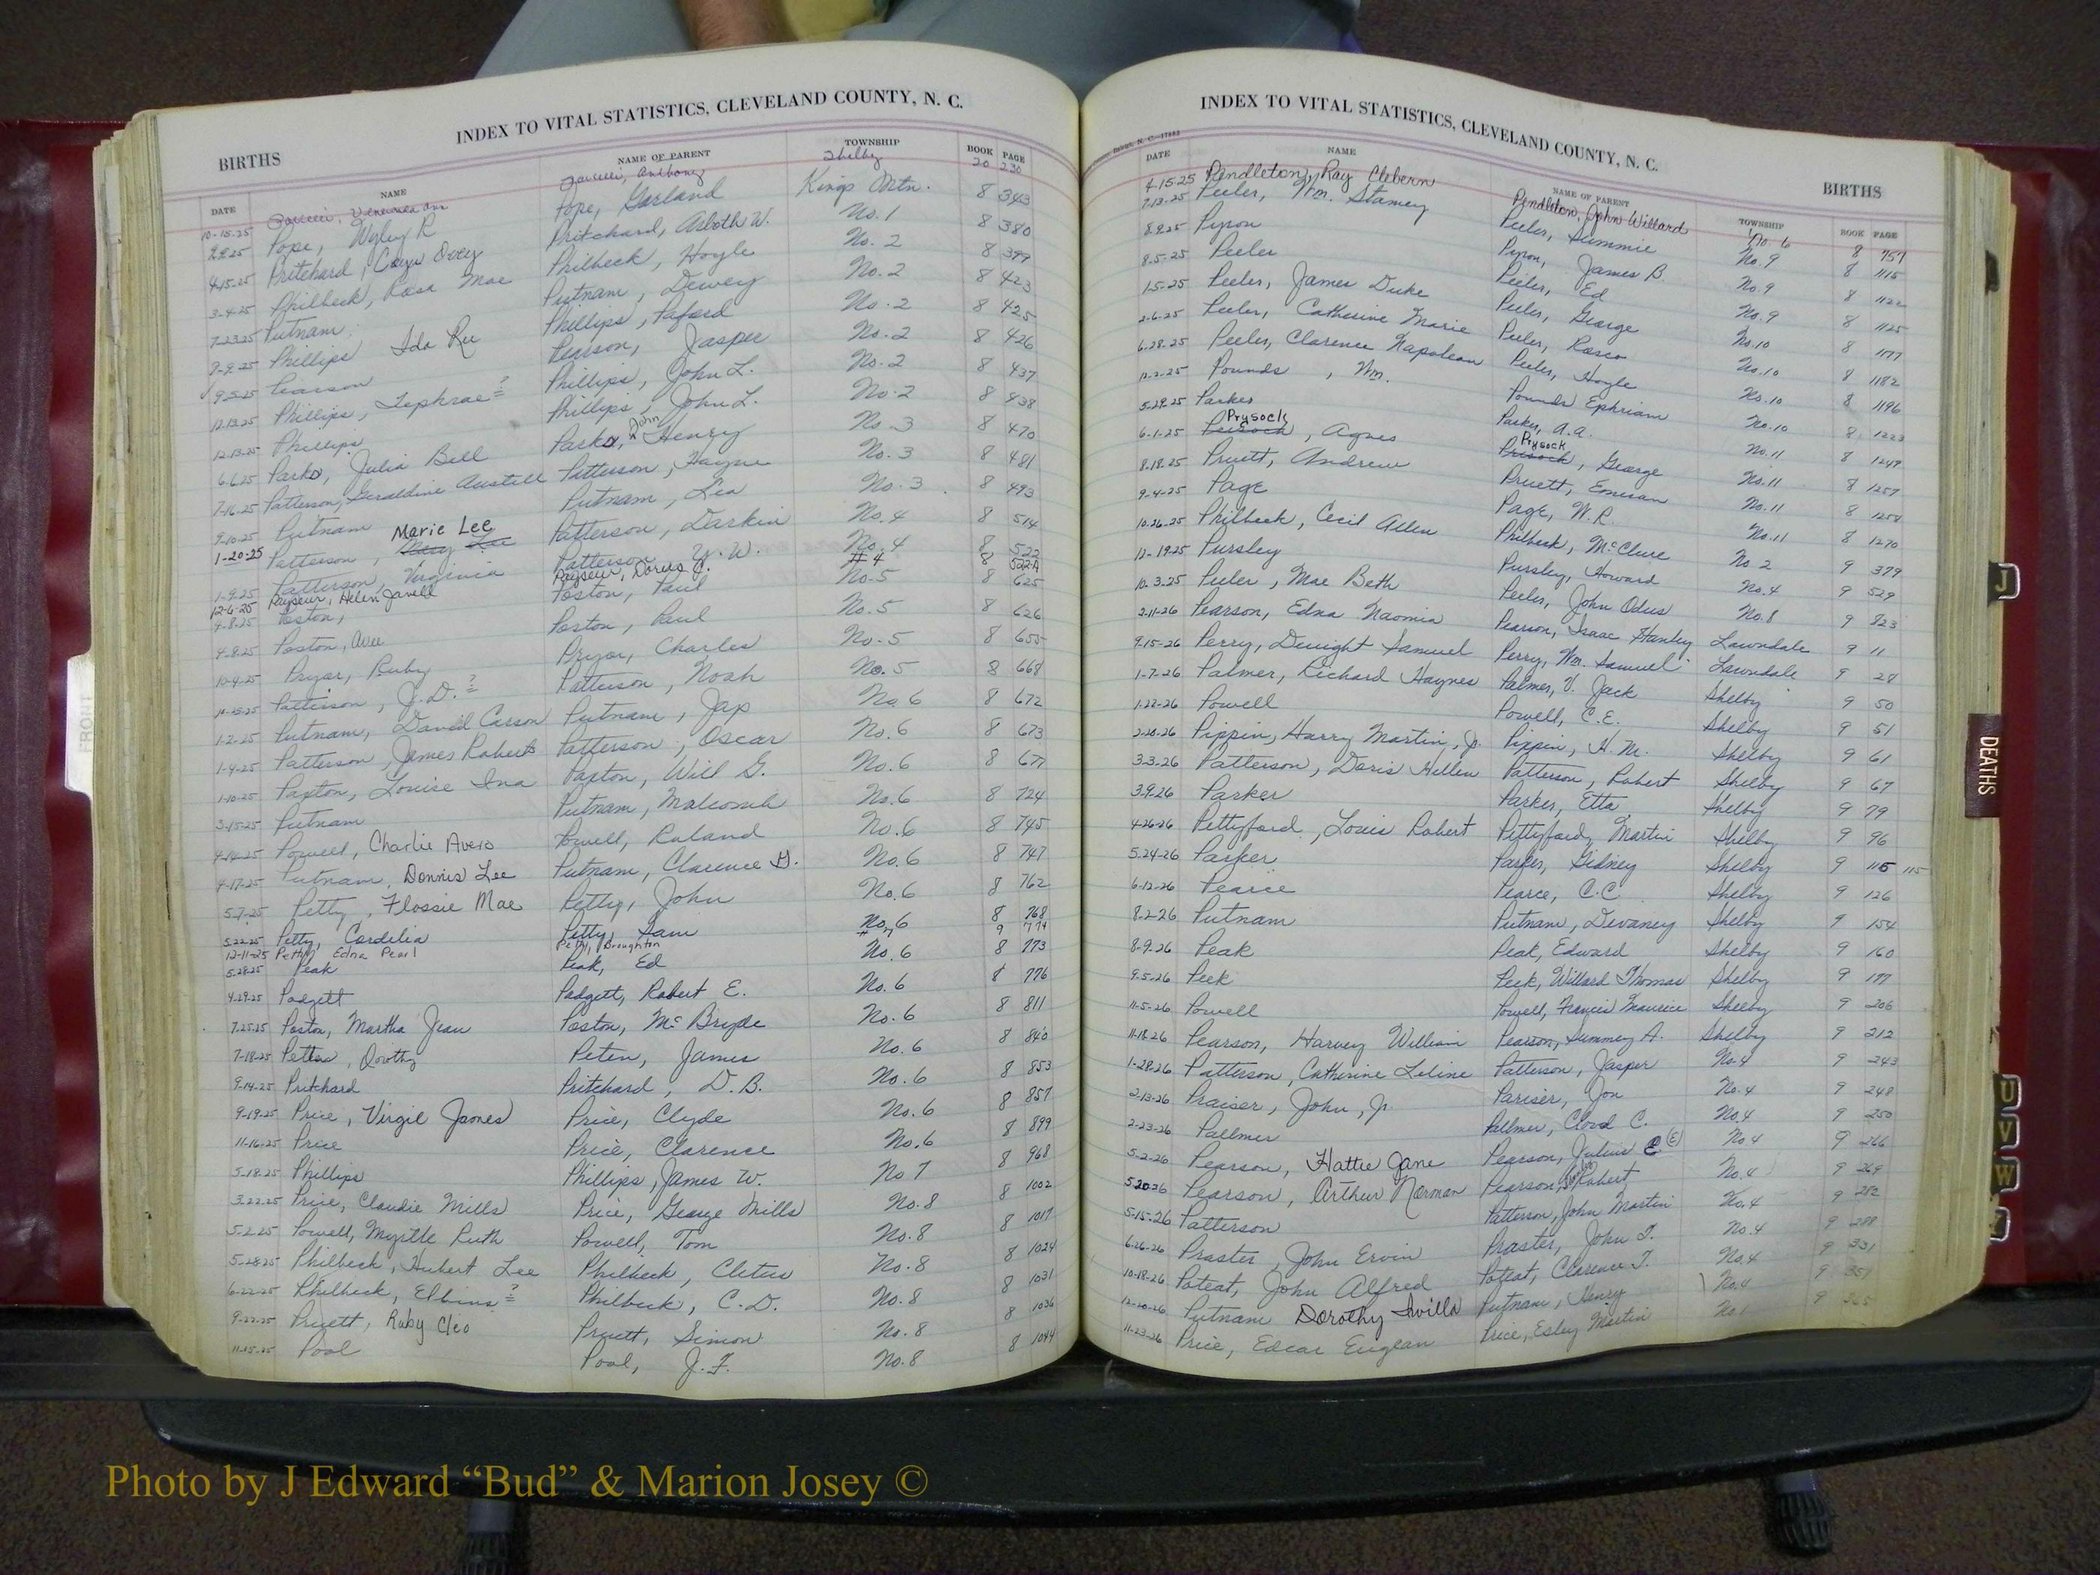 INDEX TO VITAL STATISTICS, CLEVELAND COUNTY, N. C.
BIRTHS
DATE NAME NAME OF PARENT TOWNSHIP BOOK PAGE
Anthony Shelby 20 230
10-15-25 Pope, Wyley R Pope, Garland Kings Mtn. 8 343
9-9-25 Pritchard, Ovey Pritchard, Asloth W. No. 1 8 380
4-15-25 Philbeck, Rosa Mae Philbeck, Hoyle No. 2 8 399
3-4-25 Putnam Putnam, Dewey No. 2 8 423
7-23-25 Phillips Ida Ru Phillips, Paford No. 2 8 425
8-9-25 Pearson Pearson, Jasper No. 2 8 426
9-5-25 Phillips, Tephrae ? Phillips, John L. No. 2 8 437
12-13-25 Phillips Phillips, John L. No. 2 8 438
12-13-25 Parks, Julia Bell Parks, John Henry No. 3 8 470
6-6-25 Patterson, Geraldine Austell Patterson, Hayne No. 3 8 481
7-16-25 Putnam Putnam, Lea No. 3 8 493
9-10-25 Patterson, Marie Lee Patterson, Darkin No. 4 8 514
1-20-25 Patterson, Virginia Patterson, Y. W. No. 4 8 522
1-9-25 Payseur, Helen Janell Payseur, Dorus C. # 4 8 522-A
12-6-25 Poston, Poston, Paul No. 5 8 625
4-8-25 Poston, Avee Poston, Paul No. 5 8 626
4-8-25 Pryor, Ruby Pryor, Charles No. 5 8 655
10-4-25 Patterson, J. D. ? Patterson, Noah No. 5 8 668
10-15-25 Putnam, David Carson Putnam, Jap No. 6 8 672
1-2-25 Patterson, James Roberts Patterson, Oscar No. 6 8 673
1-4-25 Paxton, Louise Ina Paxton, Will G. No. 6 8 677
1-10-25 Putnam Putnam, Malcomb No. 6 8 724
3-15-25 Powell, Charlie Avero Powell, Ruland No. 6 8 745
4-14-25 Putnam, Donnis Lee Putnam, Clarence G. No. 6 8 747
4-17-25 Petty, Flossie Mae Petty, John No. 6 8 762
5-7-25 Petty, Cordelia Petty, Sam No. 6 8 768
5-22-25 Petty Edna Pearl Petty, Broughton # 7 9 774
12-11-25 Peak Peak, Ed No. 6 8 773
5-28-25 Padgett Padgett, Robert E. No. 6 8 776
4-29-25 Poston, Martha Jean Poston, McBryde No. 6 8 811
7-25-25 Peters, Dorothy Peten, James No. 6 8 840
7-18-25 Pritchard Pritchard, D. B. No. 6 8 853
9-14-25 Price, Virgil James Price, Clyde No. 6 8 857
9-19-25 Price Price, Clarence No. 6 8 899
11-16-25 Phillips Phillips, James W. No 7 8 968
5-18-25 Price, Claudie Mills Price, George Mills No. 8 8 1002
3-22-25 Powell, Myrtle Ruth Powell, Tom No. 8 8 1017
5-2-25 Philbeck, Hubert Lee Philbeck, Cletus No. 8 8 1024
5-28-25 Philbeck, Elbins ? Philbeck, C. D. No. 8 8 1031
6-22-25 Pruett, Ruby Cleo Pruett, Simon No. 8 8 1036
9-22-25 Pool Pool, J. F. No. 8 8 1044
11-25-25
INDEX TO VITAL STATISTICS, CLEVELAND COUNTY, N. C.
BIRTHS
DATE NAME NAME OF PARENT TOWNSHIP BOOK PAGE
4-15-25 Pendleton, Ray Clebern Pendleton, John Willard No. 6 8 757
7-13-25 Peeler, Wm. Stamey Peeler, Summie No. 9 8 1115
8-9-25 Pyron Pyron, James B. No. 9 8 1122
8-5-25 Peeler Peeler, Ed No. 9 8 1125
1-5-25 Peeler, James Duke Peeler, George No. 10 8 1177
2-6-25 Peeler, Catherine Marie Peeler, Rosco No. 10 8 1182
6-28-25 Peeler, Clarence Napoleon Peeler, Hoyle No. 10 8 1196
12-2-25 Pounds, Wm. Pounds Ephriam No. 10 8 1223
5-29-25 Parker Parker, A. A. No. 11 8 1249
6-1-25 Prysock, Agnes Prysock, George No. 11 8 1257
8-18-25 Pruett, Andrew Pruett, Emison No. 11 8 1258
9-4-25 Page Page, W. R. No. 11 8 1270
10-26-25 Philbeck, Cecil Allen Philbeck, McClure No 2 9 379
12-19-25 Pursley Pursley, Howard No. 4 9 529
10-3-25 Peeler, Mae Beth Peeler, John Odus No. 8 9 823
2-11-26 Pearson, Edna Naomia Pearson, Isaac Hanley Lawndale 9 11
9-15-26 Perry, Dwight Samuel Perry, Wm. Samuel Lawndale 9 28
1-7-26 Palmer, Richard Haynes Palmer, V. Jack Shelby 9 50
1-22-26 Powell Powell, C. E. Shelby 9 51
2-20-26 Pippin, Harry Martin, Jr. Pippin, H. M. Shelby 9 61
3-3-26 Patterson, Doris Hellen Patterson, Robert Shelby 9 67
3-9-26 Parker Parker, Etta Shelby 9 79
4-26-26 Pettyford, Louis Robert Pettyford, Martin Shelby 9 96
5-24-26 Parker Parker, Gidney Shelby 9 115 115
6-12-26 Pearce Pearce, C. C Shelby 9 126
8-2-26 Putnam Putnam, Devaney Shelby 9 154
8-9-26 Peak Peak, Edward Shelby 9 160
9-5-26 Peek Peek, Willard Thomas Shelby 9 197
11-5-26 Powell Powell, Francis Maurice Shelby 9 206
11-18-26 Pearson, Harvey William Pearson, Summey A. Shelby 9 212
1-28-26 Patterson, Catherine Leline Patterson, Jasper No. 4 9 243
2-13-26 Praiser, John, Jr. Pariser, Jon No. 4 9 248
2-23-26 Pallmer Pallmer, Cloud C. No. 4 9 250
5-2-26 Pearson, Hattie Jane Pearson, Julius E (E) No 4 9 266
5-20-26 Pearson, Arthur Norman Pearson, Robert No. 4 9 269
5-15-26 Patterson Patterson, John Martin No. 4 9 282
6-26-26 Praster, John Ervin Praster, John T. No. 4 9 288
10-18-26 Poteat, John Alfred Poteat, Clarence T. No. 4 9 331
12-20-26 Putnam Dorothy Iwilla Putnam, Henry No. 4 9 351
11-23-26 Price, Edcar Euglean Price, Esley Martin No. 1 9 365
FRONT
J
DEATHS
U
V
W
Photo by J Edward “Bud” & Marion Josey ©